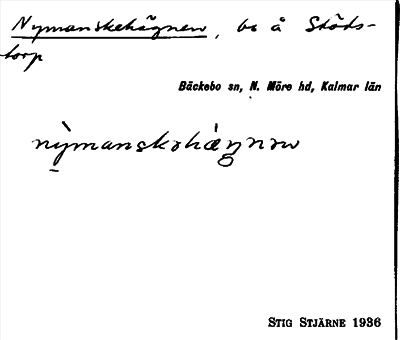 Nymanskehägnen, bs å Stöds-
torp
Bäckebo sn, N. Möre hd, Kalmar län
STIG STJÄRNE 1936